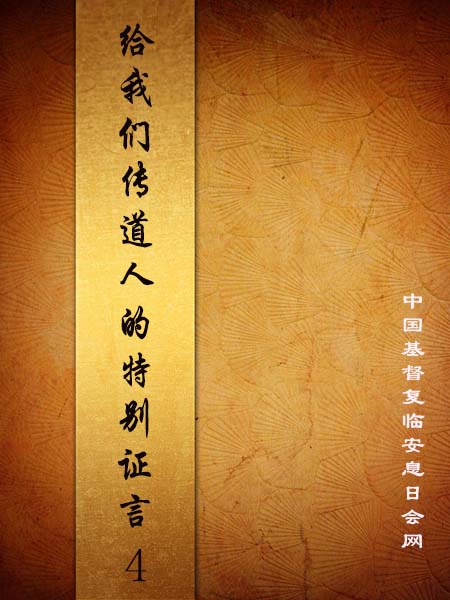 给我们传道人的特别证言4
中国基督复临安息日会网